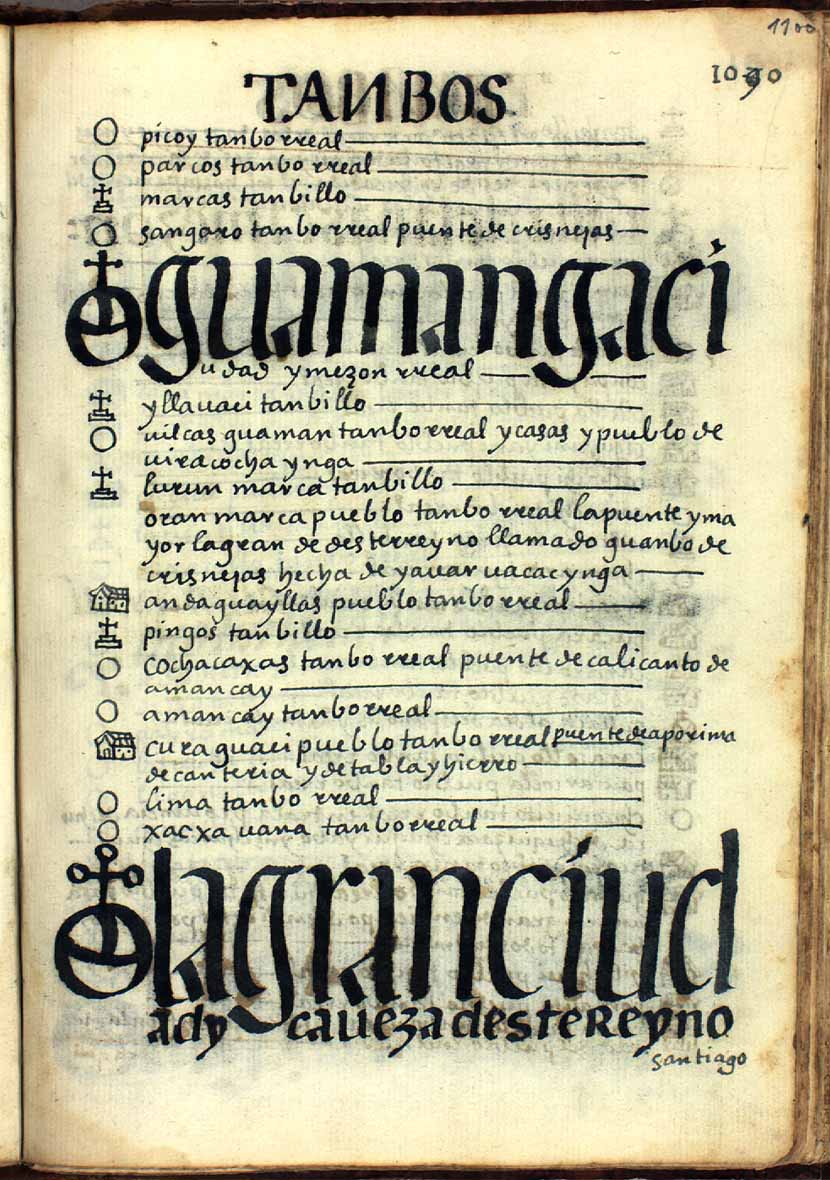 1100
1090
TANBOS
picoy tanbo rreal
parcos tanbo rreal
marcas tanbillo
sangaro tanbo rreal puente de crisnejas
guamanga ci
udad y mezon rreal
yllauaci tanbillo
uilcas guaman tanbo rreal y casas y pueblo de
uiracocha ynga
lurun marca tanbillo
oran marca pueblo tanbo rreal la puente y ma
yor la gran de desterreyno llamado guanbo de
crisnejas hecha de yauar uacac ynga
andaguayllas pueblo tanbo rreal
pingos tanbillo
cochacaxas tanbo rreal puente de calicanto de
amancay
amancay tanbo rreal
curaguaci pueblo tanbo rreal puente de aporima
de canteria y de tabla y hierro
lima tanbo rreal
xacxauana tanbo rreal
la gran ciud
ad y caueza deste Reyno
santiago